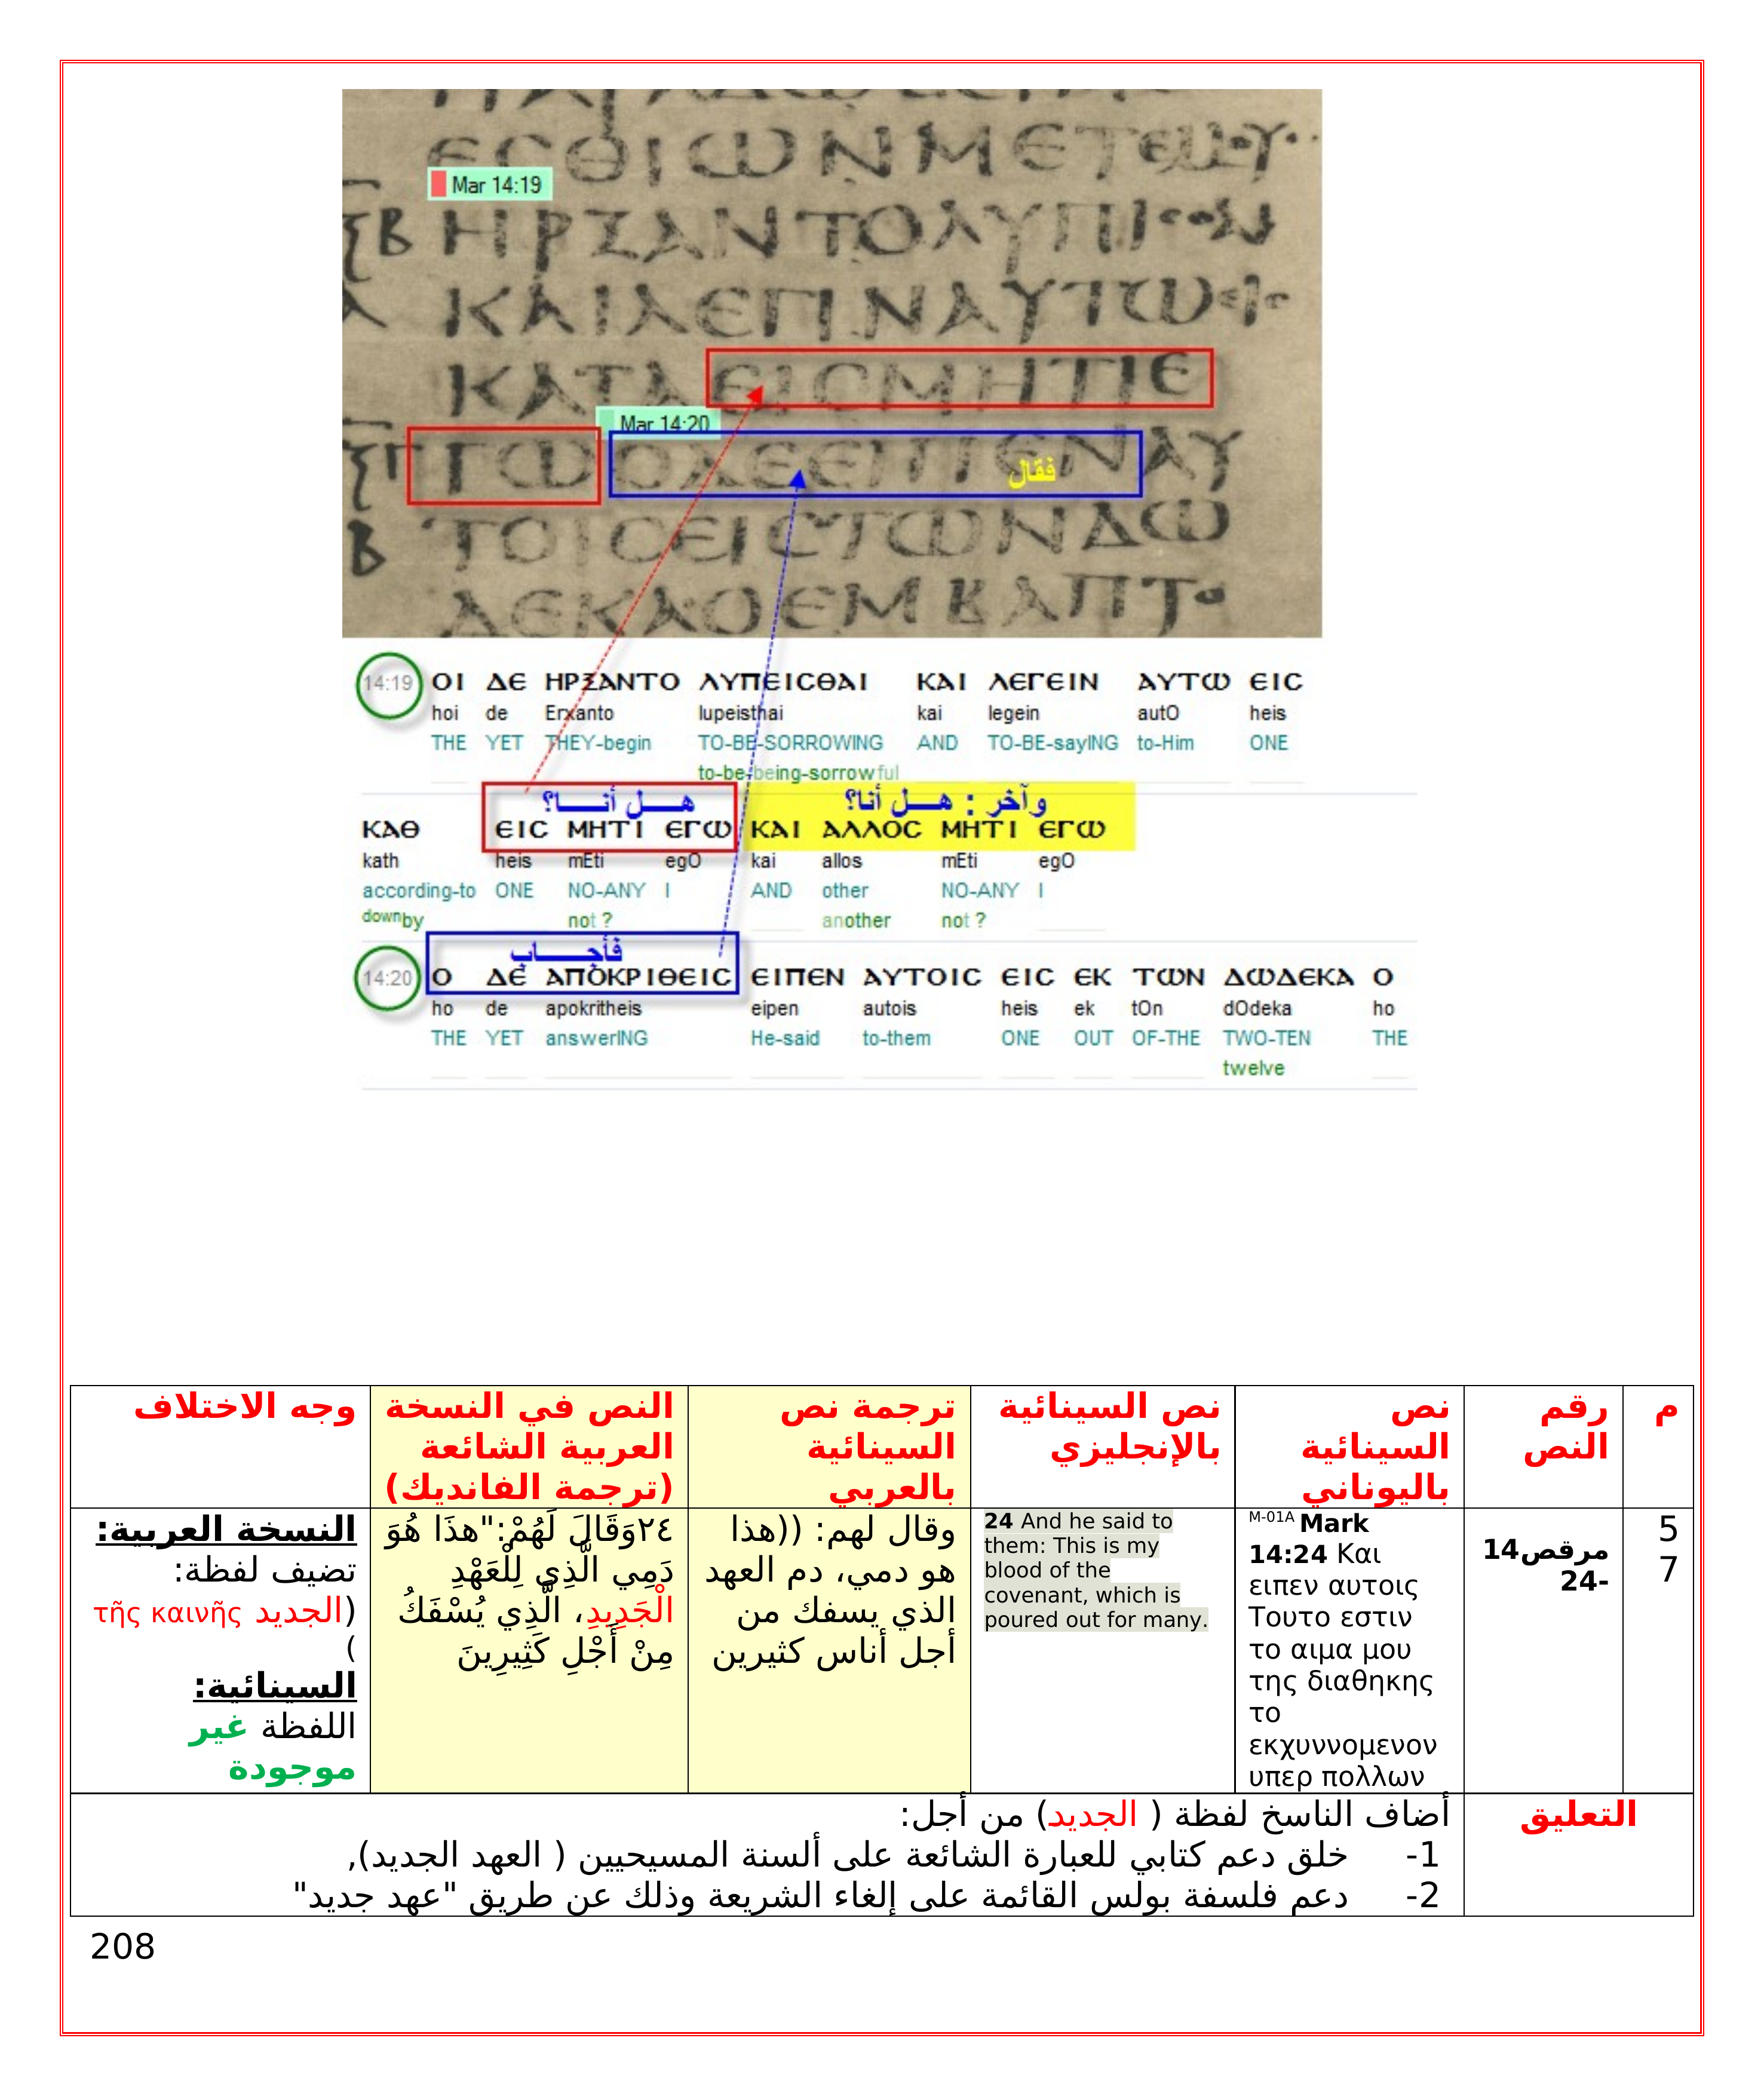 ЄСΘΙΩΝΜЄΤЄΜ
Mar 14:19
ΗΡΞΑΝΤΟΛΥΠΙ
ΚΑΙΛЄΓΙΝΑΥΤΩ
ΚΑΤΑЄΙСΜΗΤΙЄ
Mar 14:20
ΓΩΟΔЄЄΙΠЄΝΑΥ
فقال
ΤΟΙСЄΙСΤΩΝΔΩ
ΔЄΚΑΟЄΜΒΑΠΤ
14:19 ΟΙ ΔЄ ΗΡΞΑΝΤΟ ΛΥΠЄΙСΘΑΙ ΚΑΙ ΛЄΓЄΙΝ ΑΥΤΩ ЄΙС
hoi de Erxanto lupeisthai kai legein autO heis
THE YET THEY-begin TO-BE-SORROWING AND TO-BE-sayING to-Him ONE
to-be-being-sorrowful
هـــل أنـــــا؟ وآخر : هـــل أنا؟
ΚΑΘ ЄΙС ΜΗΤΙ ЄΓΩ ΚΑΙ ΑΛΛΟС ΜΗΤΙ ЄΓΩ
kath heis mEti egO kai allos mEti egO
according-to ONE NO-ANY I AND other NO-ANY I
downby not ? another not ?
فأجـــــاب
14:20 Ο ΔЄ ΑΠΟΚΡΙΘЄΙС ЄΙΠЄΝ ΑΥΤΟΙС ЄΙС ЄΚ ΤΩΝ ΔΩΔЄΚΑ Ο
ho de apokritheis eipen autois heis ek tOn dOdeka ho
THE YET answerING He-said to-them ONE OUT OF-THE TWO-TEN THE
twelve
م
رقم
النص
نص
السينائية
باليوناني
نص السينائية
بالإنجليزي
ترجمة نص
السينائية
بالعربي
النص في النسخة
العربية الشائعة
(ترجمة الفانديك)
وجه الاختلاف
5
7
مرقص14
-24
M-01A Mark
14:24 Και
ειπεν αυτοις
Τουτο εστιν
το αιμα μου
της διαθηκης
το
εκχυννομενον
υπερ πολλων
24 And he said to
them: This is my
blood of the
covenant, which is
poured out for many.
وقال لهم: ((هذا
هو دمي، دم العهد
الذي يسفك من
أجل أناس كثيرين
٢٤وَقَالَ لَهُمْ:"هذَا هُوَ
دَمِي الَّذِي لِلْعَهْدِ
الْجَدِيدِ، الَّذِي يُسْفَكُ
مِنْ أَجْلِ كَثِيرِينَ
النسخة العربية:
تضيف لفظة:
(الجديد τῆς καινῆς
)
السينائية:
اللفظة غير
موجودة
التعليق
أضاف الناسخ لفظة ( الجديد) من أجل:
1- خلق دعم كتابي للعبارة الشائعة على ألسنة المسيحيين ( العهد الجديد),
2- دعم فلسفة بولس القائمة على إلغاء الشريعة وذلك عن طريق "عهد جديد"
208